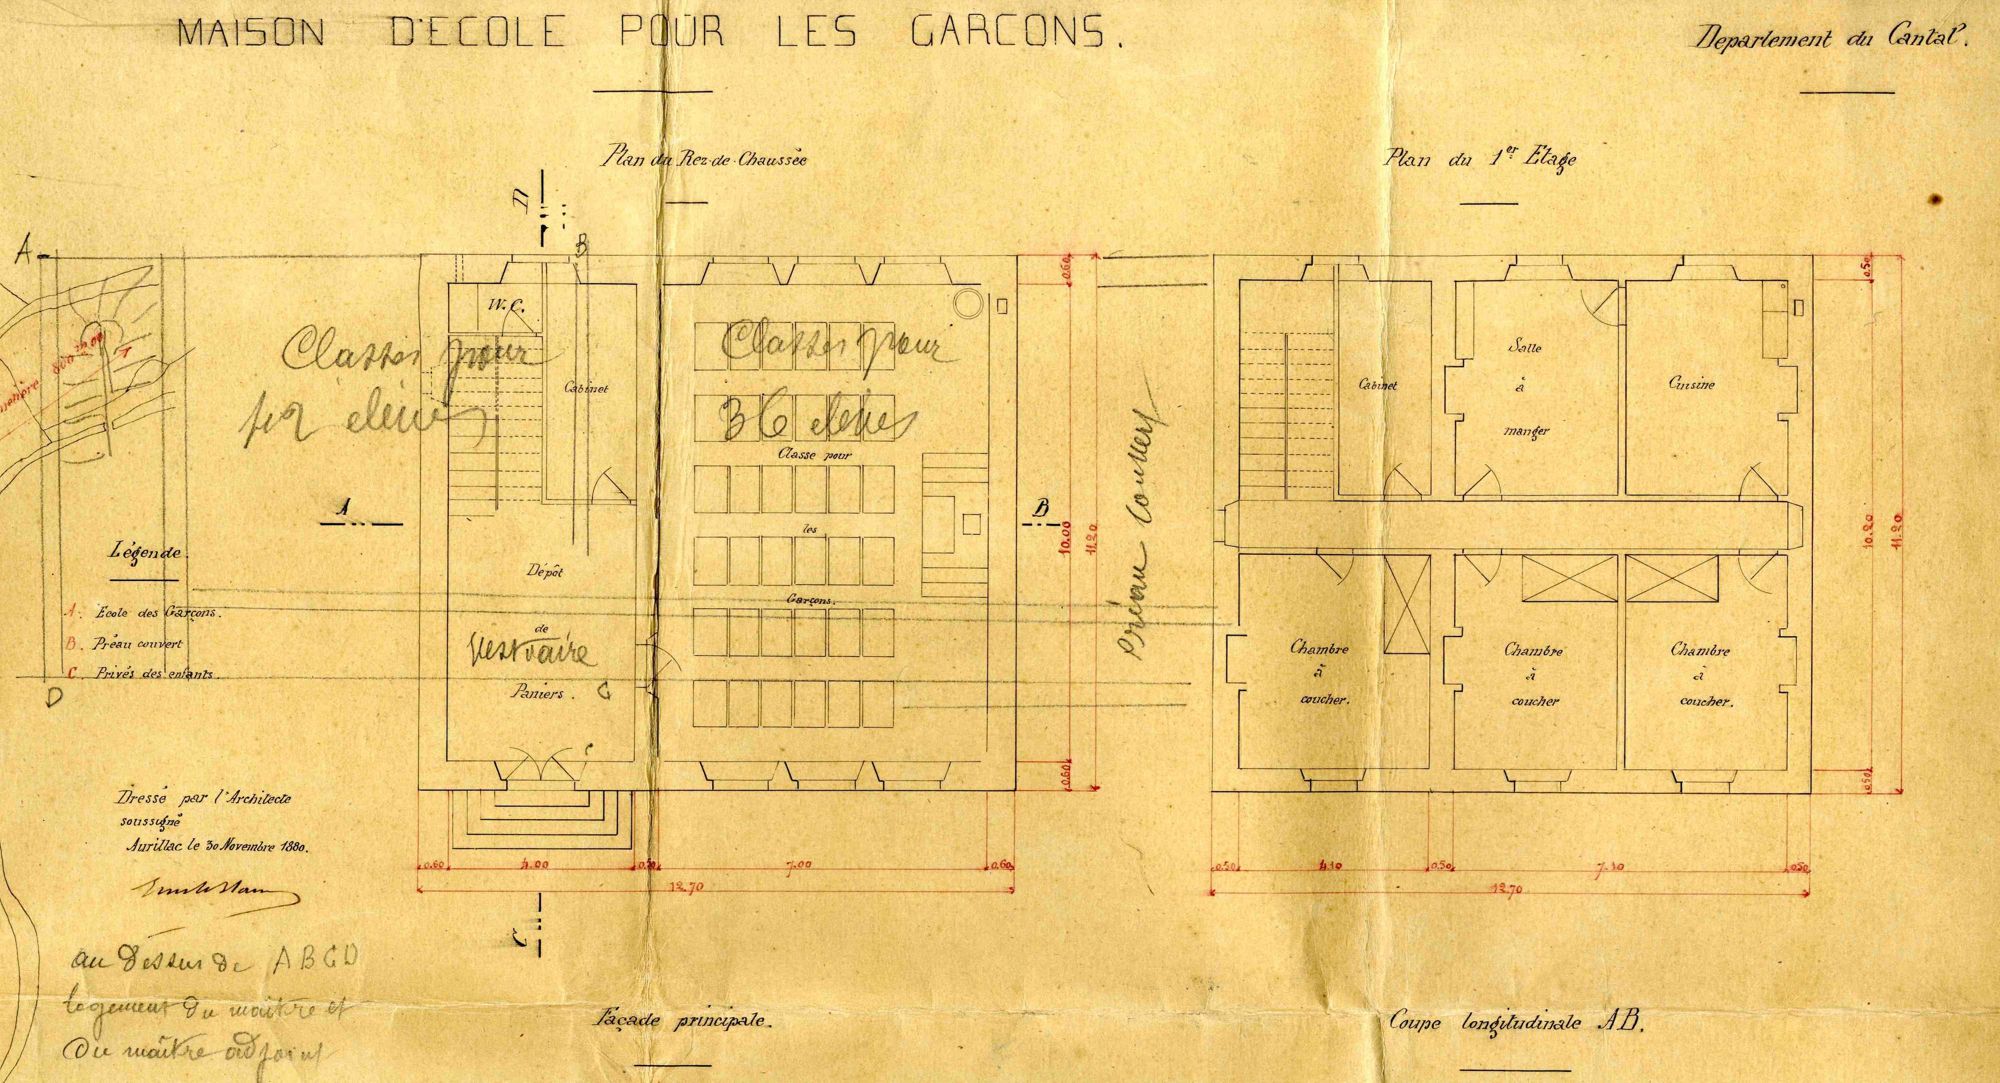 MAISON D'ECOLE POUR LES GARCONS.
Departement du Cantal.
Plan du Rez-de-Chaussée
Plan du 1er Etage
D
A
B
W.C.
Classes pour
elèves
Cabinet
Classes pour
36 elèves
Classe pour
les
Garçons.
A
B
Dépôt
de
Vestiaire
Paniers.
C
Préau Couvert
0.60
10.00
11.20
0.60
Cabinet
Salle
à
manger
Cuisine
Chambre
à
coucher.
Chambre
à
coucher
Chambre
à
coucher.
0.50
10.20
11.20
0.50
Légende.
A. Ecole des Garçons.
B. Préau couvert
C Privés des enfants
D
Dressé par l'Architecte
soussigné
Aurillac le 30 Novembre 1880.
0.60
4.00
0.50
7.00
0.60
12.70
0.50
4.10
0.50
7.10
0.50
12.70
C
au dessus de ABCD
logement du maître et
du maître adjoint
Façade principale.
Coupe longitudinale AB.